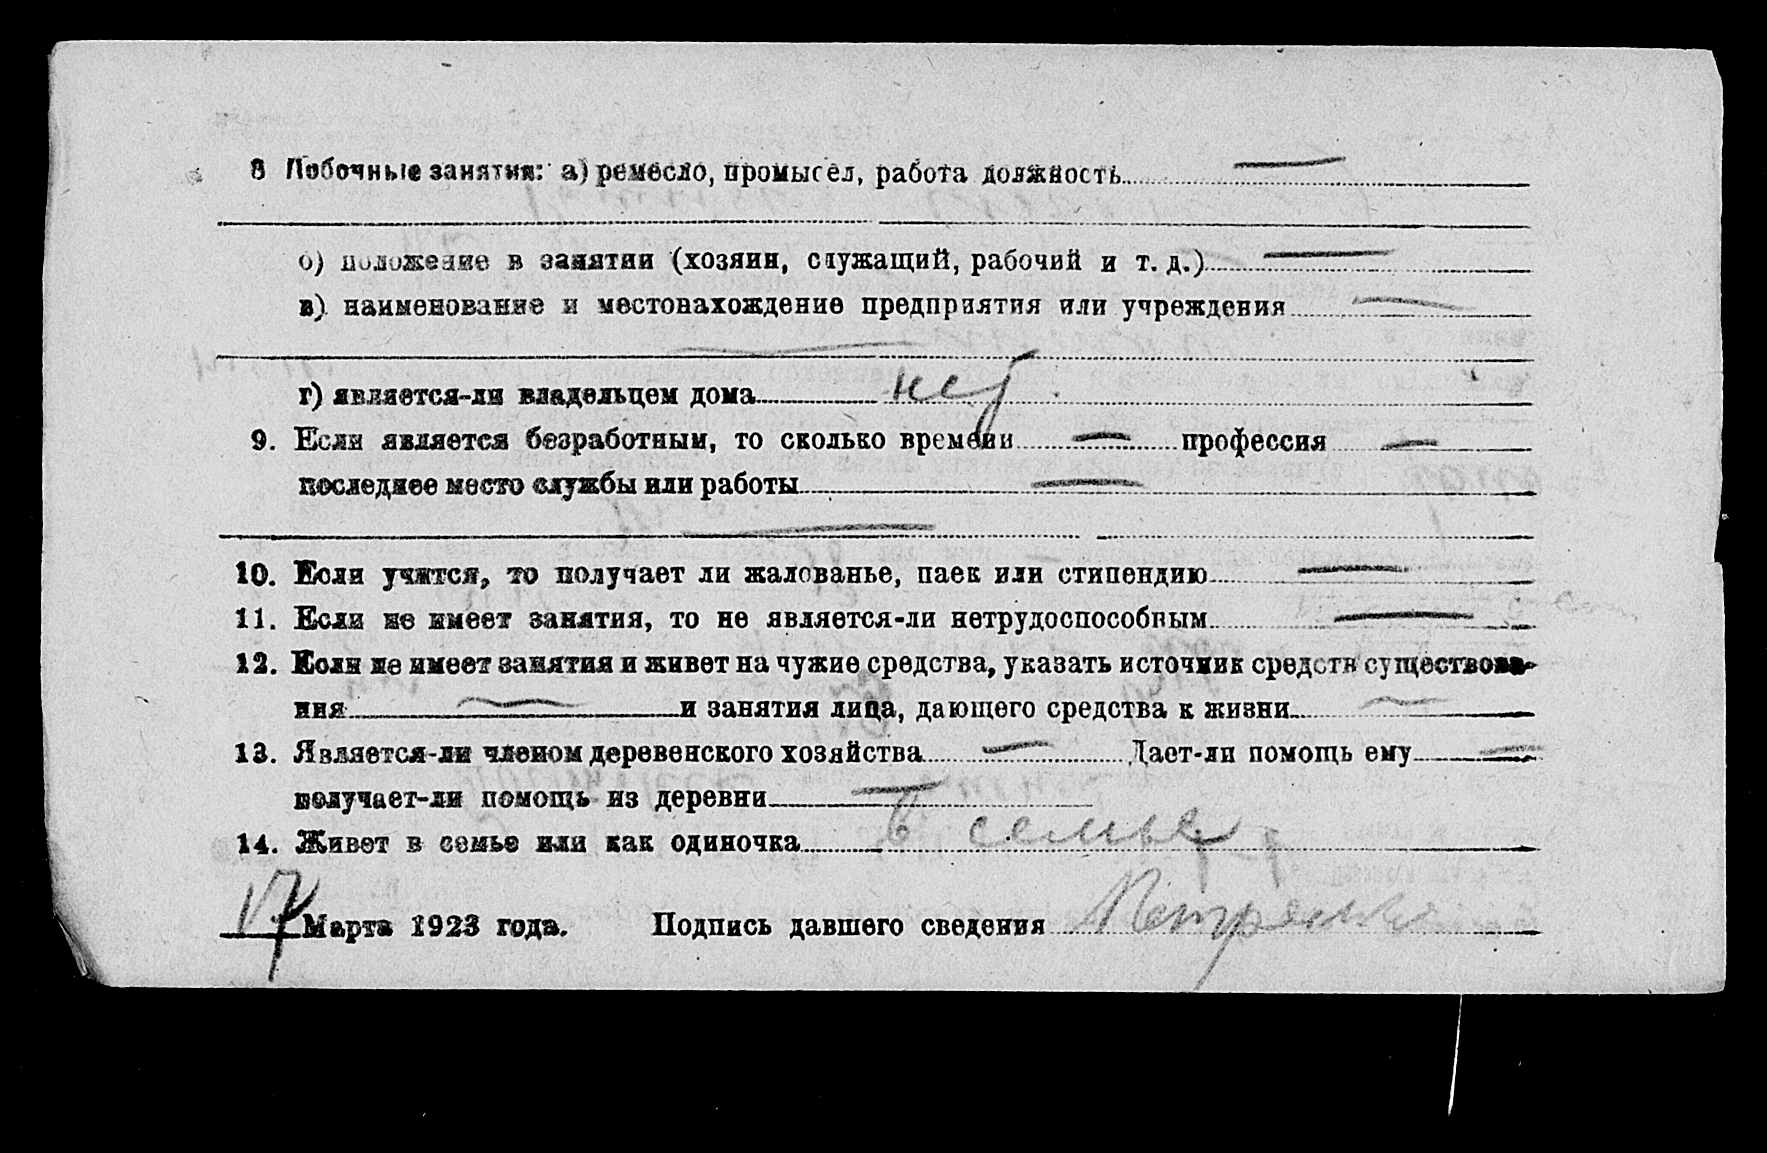 8 Побочные занятия: а) ремесло, промысел, работа должность —
б) положение в занятии (хозяин, служащий, рабочий и т. д.) —
в) наименование и местонахождение предприятия или учреждения —
—
г) является-ли владельцем дома нет
9. Если является безработным, то сколько времени — профессия —
последнее место службы или работы —
—
10. Если учится, то получает ли жалованье, паек или стипендию —
11. Если не имеет занятия, то не является-ли нетрудоспособным —
12. Если не имеет занятия и живет на чужие средства, указать источник средств существова-
ния — и занятия лица, дающего средства к жизни —
13. Является-ли членом деревенского хозяйства — Дает-ли помощь ему —
получает-ли помощь из деревни —
14. Живет в семье или как одиночка в семье
17 Марта 1923 года. Подпись давшего сведения Петренко